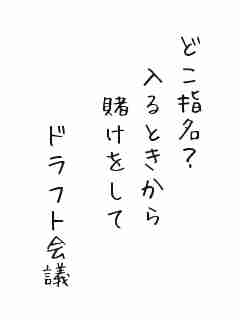 どこ指名？
入るときから
賭けをして
ドラフト会議